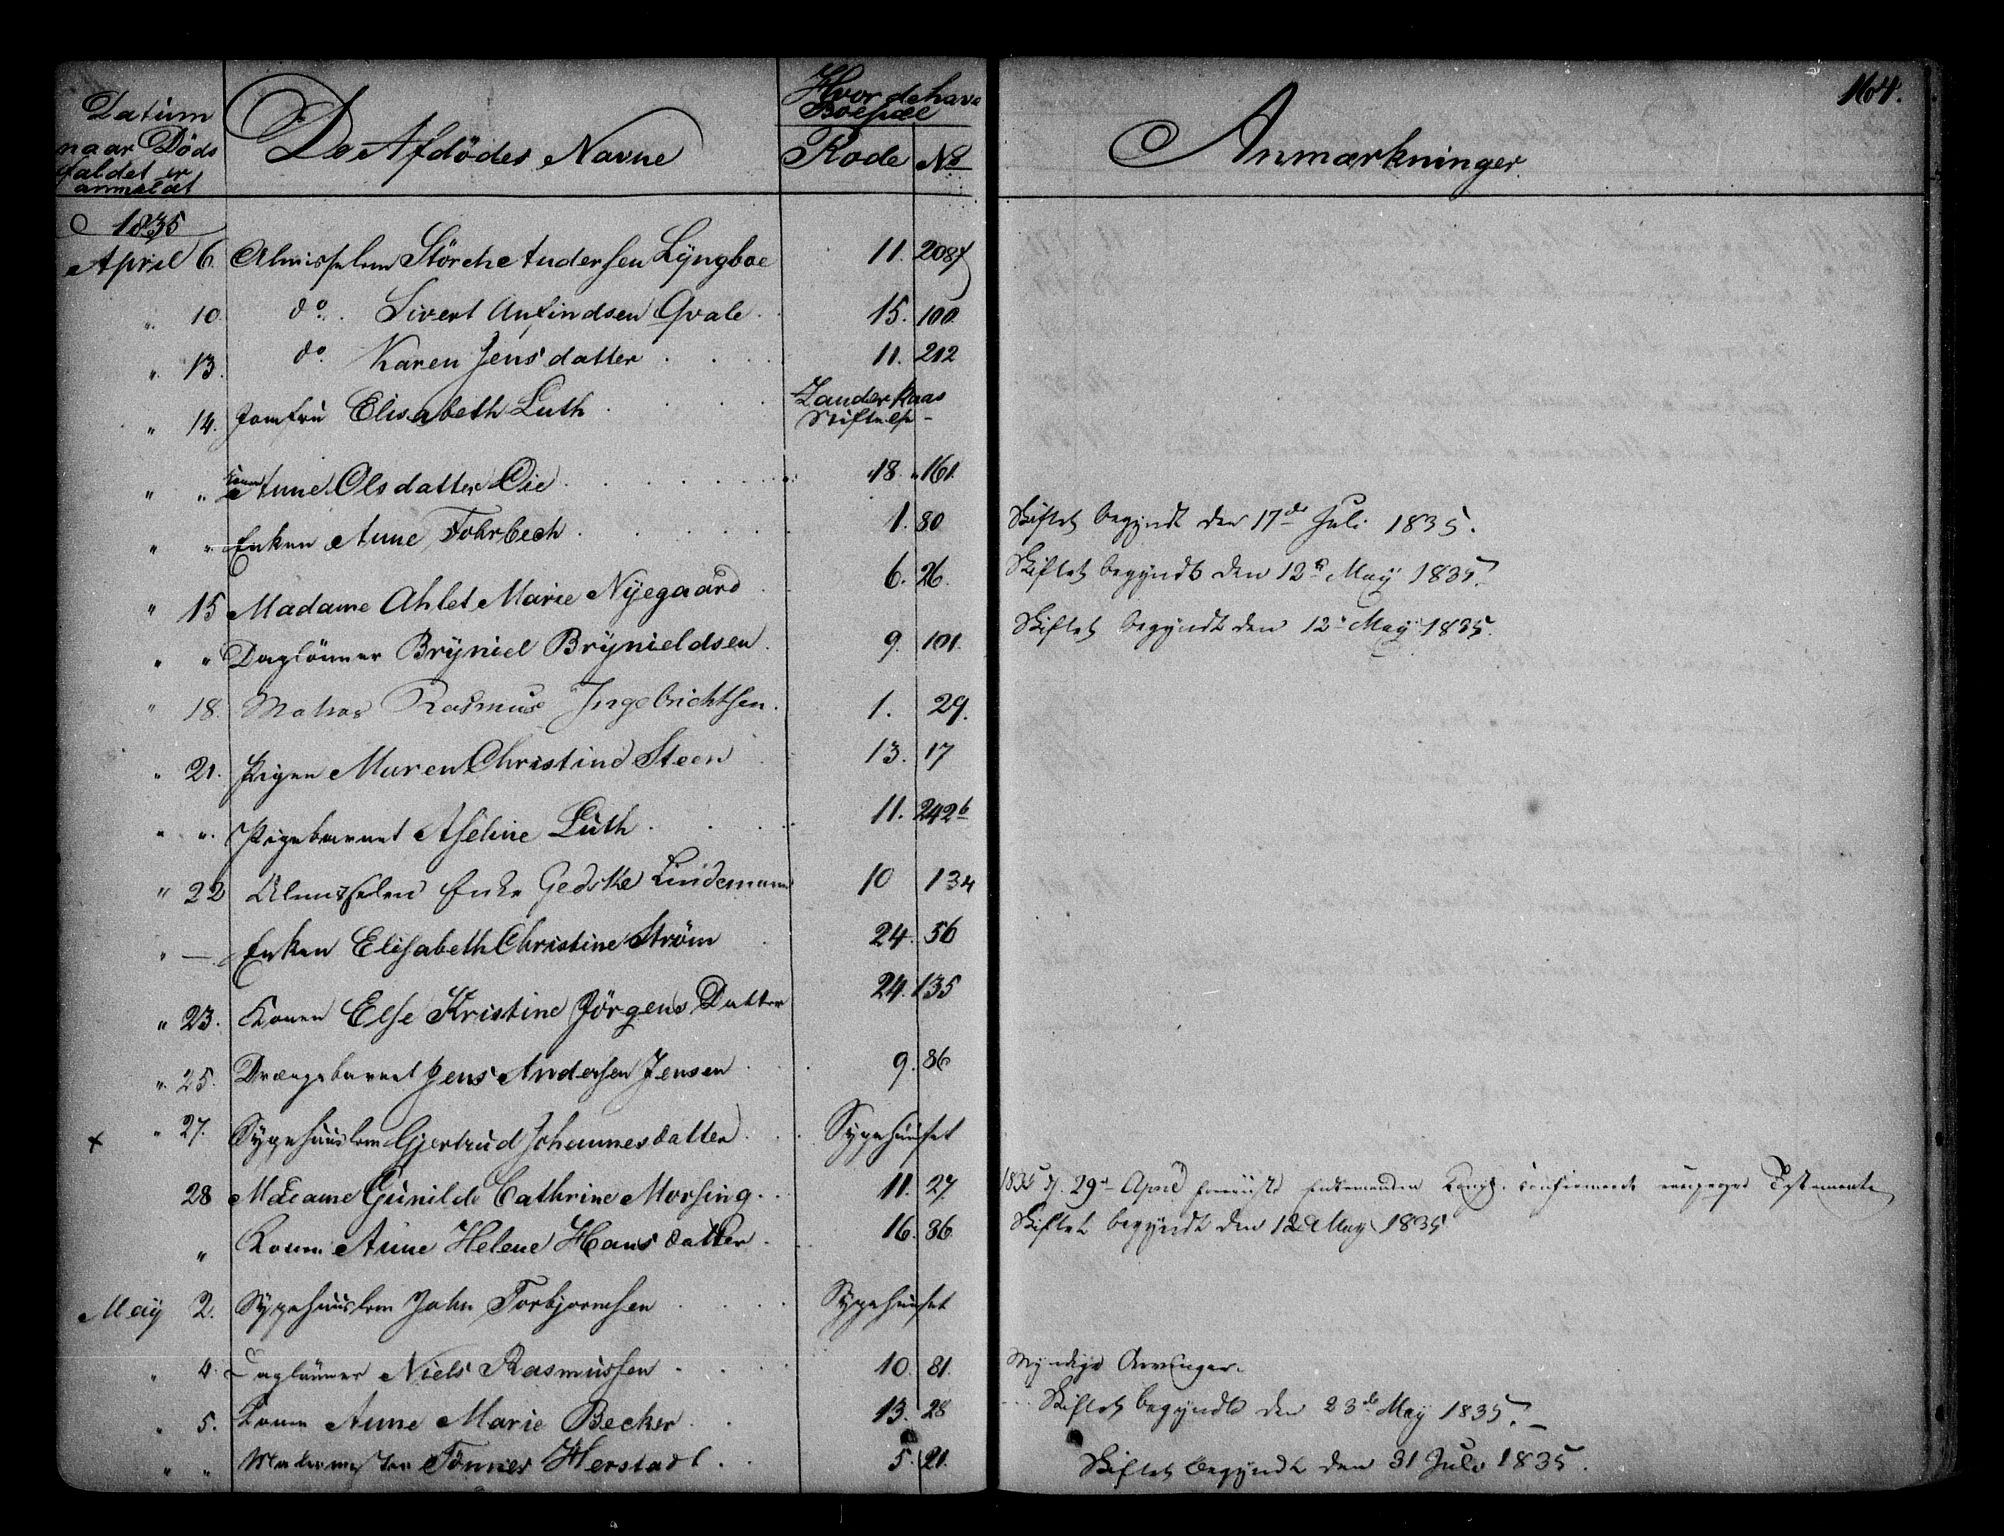 164.
Datum naar Dødsfaldet er anmeldt
De Afdödes Navne
Hvor de have Boepæl
Rode No
Anmærkninger.
1835
April 6. Almisselem Störch Andersen Lyngboe 11. 208
" 10. do. Sivert Anfindsen Qvale 15. 100.
" 13. do. Karen Jensdatter 11. 212
" 14. Jomfru Elisabeth Luth Zander Kaas Stiftelse
" " Konen Anne Olsdatter Oie 18. 161.
" " Enken Anne Fohrbech 1. 80 Skiftet begyndt den 17de Juli 1835.
" 15 Madame Ahlet Marie Nyegaard 6. 26. Skiftet begyndt den 12te May 1835.
" " Daglönner Bryniel Brynieldsen 9. 101. Skiftet begyndt den 12 May 1835.
" 18. Matros Rasmus Ingebrichtsen. 1. 29.
" 21. Pigen Maren Christine Steen 13. 17
" " Pigebarnet Aseline Luth 11. 242b
" 22 Almisselem Enke Gedske Lindemann 10 134
" — Enken Elisabeth Christine Ström 24. 56
" 23. Konen Else Kristine Jörgens Datter 24. 135
" 25. Drængebarnet Jens Andersen Jensen 9. 86
x " 27. Sygehuuslem Gjertrud Johannesdatter Sygehuuset
28 Madame Gunilde Cathrine Morsing 11. 27 1835 d. 29de April foreviiste Enkemanden Kongl. confirmerede Testamente
" Konen Anne Helene Hansdatter 16. 36. Skiftet begyndt den 12 May 1835
May 2. Sygehuuslem John Torbjornsen Sygehuuset
" 4. Daglönner Niels Rasmussen 10. 81. Myndige Arvinger.
" 5. Konen Anne Marie Becker 13. 28 Skiftet begyndt den 23de May 1835.
" " Tönnes Herstad 5. 21. Skiftet begyndt den 31 Juli 1835.